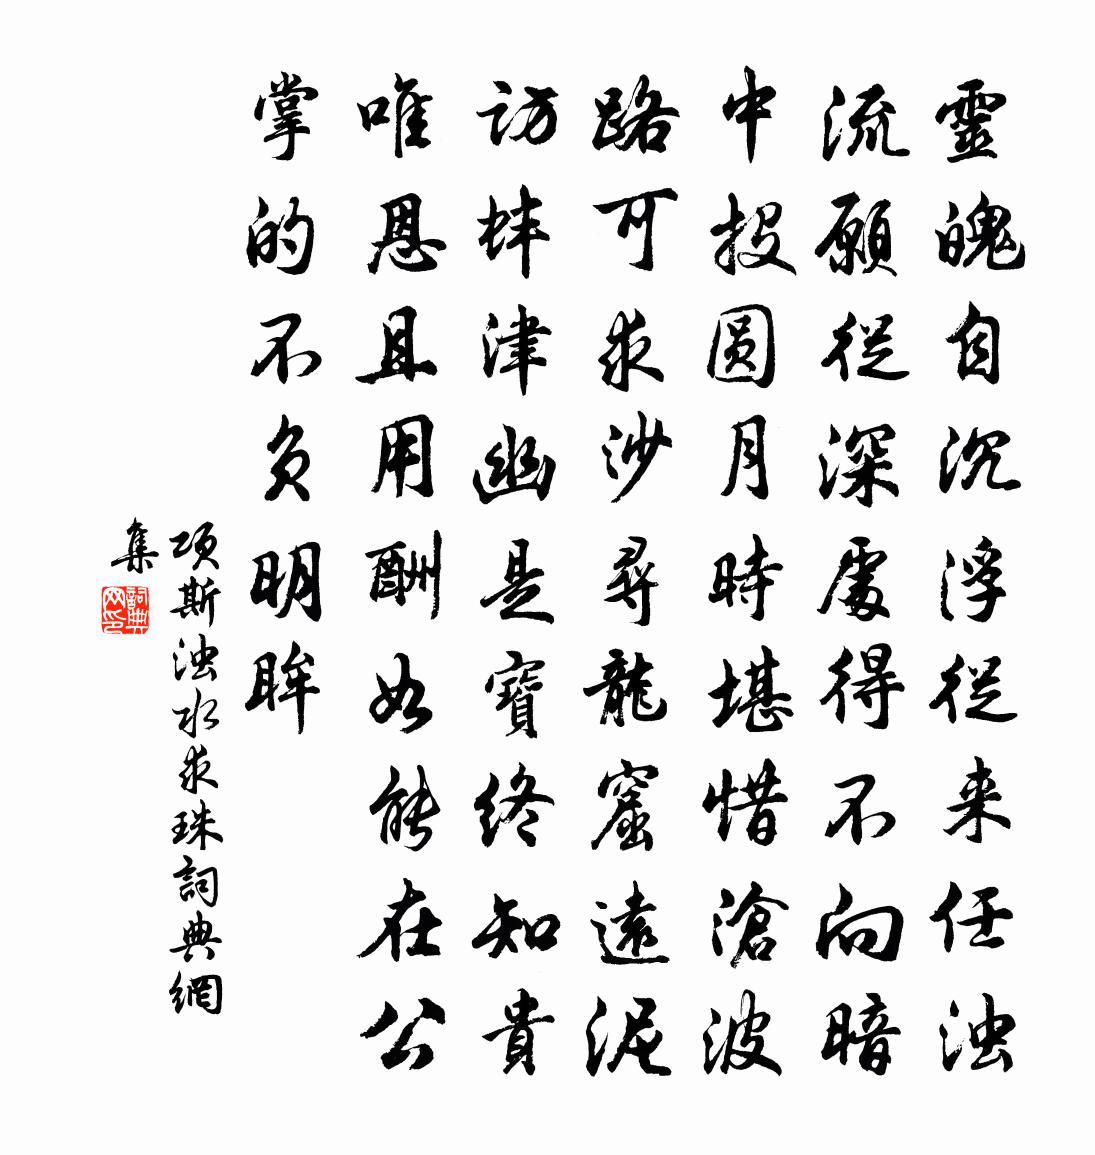 靈魄自沉浮從来任浊
流願從深處得不向暗
中投圆月時堪惜滄波
路可求沙尋龍窟遠泥
訪蚌津幽是寶終知貴
唯恩且用酬如能在公
掌的不負明眸
項斯浊水求珠詞典網
集
詞典
网印